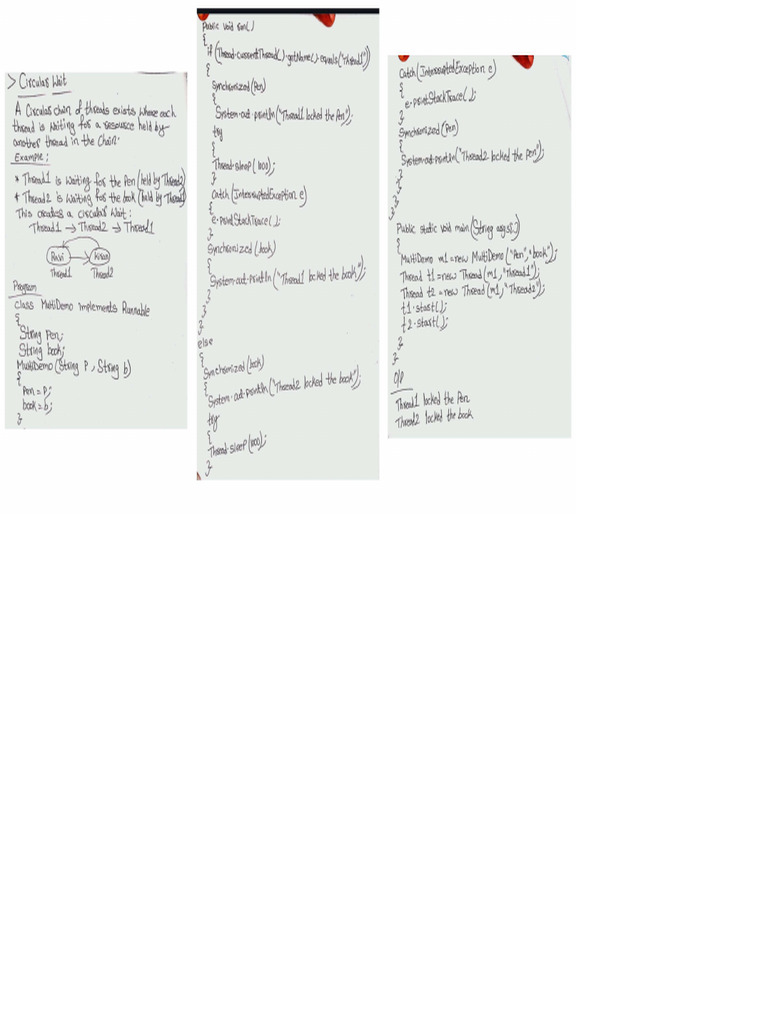 > Circular Wait
A Circular chain of threads exists where each
thread is waiting for a resource held by
another thread in the Chain.
Example:
* Thread1 is waiting for the Pen (held by Thread2)
* Thread2 is waiting for the book (held by Thread1)
This creates a circular wait:
Thread1 → Thread2 → Thread1
Ravi Kiran
Thread1 Thread2
Program
Class MultiDemo implements Runnable
{
String Pen;
String book;
MultiDemo (String P, String b)
{
Pen = P;
book = b;
}
Public void run()
{
if (Thread.currentThread().getName().equals("Thread1"))
{
Synchronized (Pen)
{
System.out.println ("Thread1 locked the Pen");
try
{
Thread.sleep (1000);
}
Catch (InterruptedException e)
{
e.printStackTrace();
}
Synchronized (book)
{
System.out.println ("Thread1 locked the book");
}
}
}
else
{
Synchronized (book)
{
System.out.println ("Thread2 locked the book");
try
{
Thread.sleep (1000);
}
Catch (InterruptedException e)
{
e.printStackTrace();
}
Synchronized (Pen)
{
System.out.println ("Thread2 locked the pen");
}
}
}
}
Public static void main (String args[])
{
MultiDemo m1 = new MultiDemo ("Pen", "book");
Thread t1 = new Thread (m1, "Thread1");
Thread t2 = new Thread (m1, "Thread2");
t1.start();
t2.start();
}
}
O/P
Thread1 locked the Pen
Thread2 locked the book